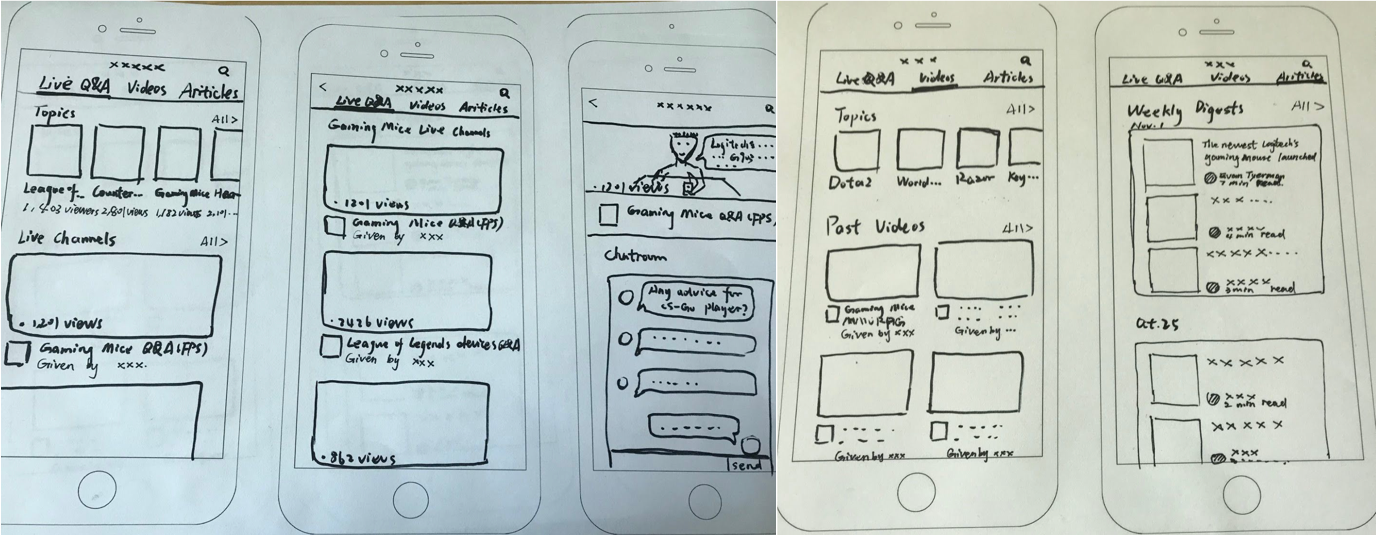 ×××××
Live Q&A Videos Ariticles
Topics
All>
League of.. Counter... Gaming Mice Hear..
2,801 views 1,182 views
Live Channels All>
1201 views
Gaming Mice Q&A (FPS)
Given by ×××.
<
×××××
Live Q&A Videos Ariticles
Gaming Mice Live Channels
1201 views
Gaming Mice Q&A (FPS)
Given by ×××
2426 views
League of Legends devices Q&A
Given by ×××
862 views
<
××××××
Logitech's
1201 views
Gaming Mice Q&A (FPS)
Chatroom
Any advice for
CS-GO player?
send
×××
Live Q&A Videos Articles
Topics All>
Dota2 World... Razor Key...
Past Videos All>
Gaming Mice
Given by ×××
Given by ...
Given by ×××
Given by ×××
×××
Live Q&A Videos Articles
Weekly Digests All>
Nov. 1
The newest Logitech's
gaming mouse launched
7 min Read
×××....
××××
4 min read
×××××.....
××××
3 min read
×××××
×××
2 min read
×××××
×××